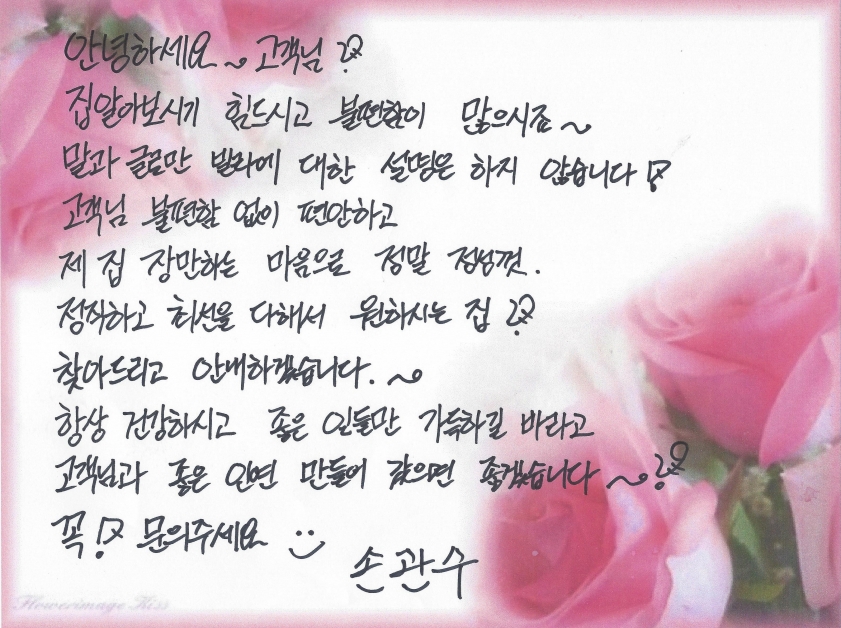 안녕하세요~ 고객님!
집알아보시기 힘드시고 불편함이 많으시죠~
말과 글로만 빌라에 대한 설명은 하지 않습니다!
고객님 불편함 없이 편안하고
제 집 장만하는 마음으로 정말 정성껏.
정직하고 최선을 다해서 원하시는 집!
찾아드리고 안내하겠습니다.~
항상 건강하시고 좋은 일들만 가득하길 바라고
고객님과 좋은 인연 만들어 갔으면 좋겠습니다~!
꼭! 문의주세요
손관수
Flowerimage Kiss